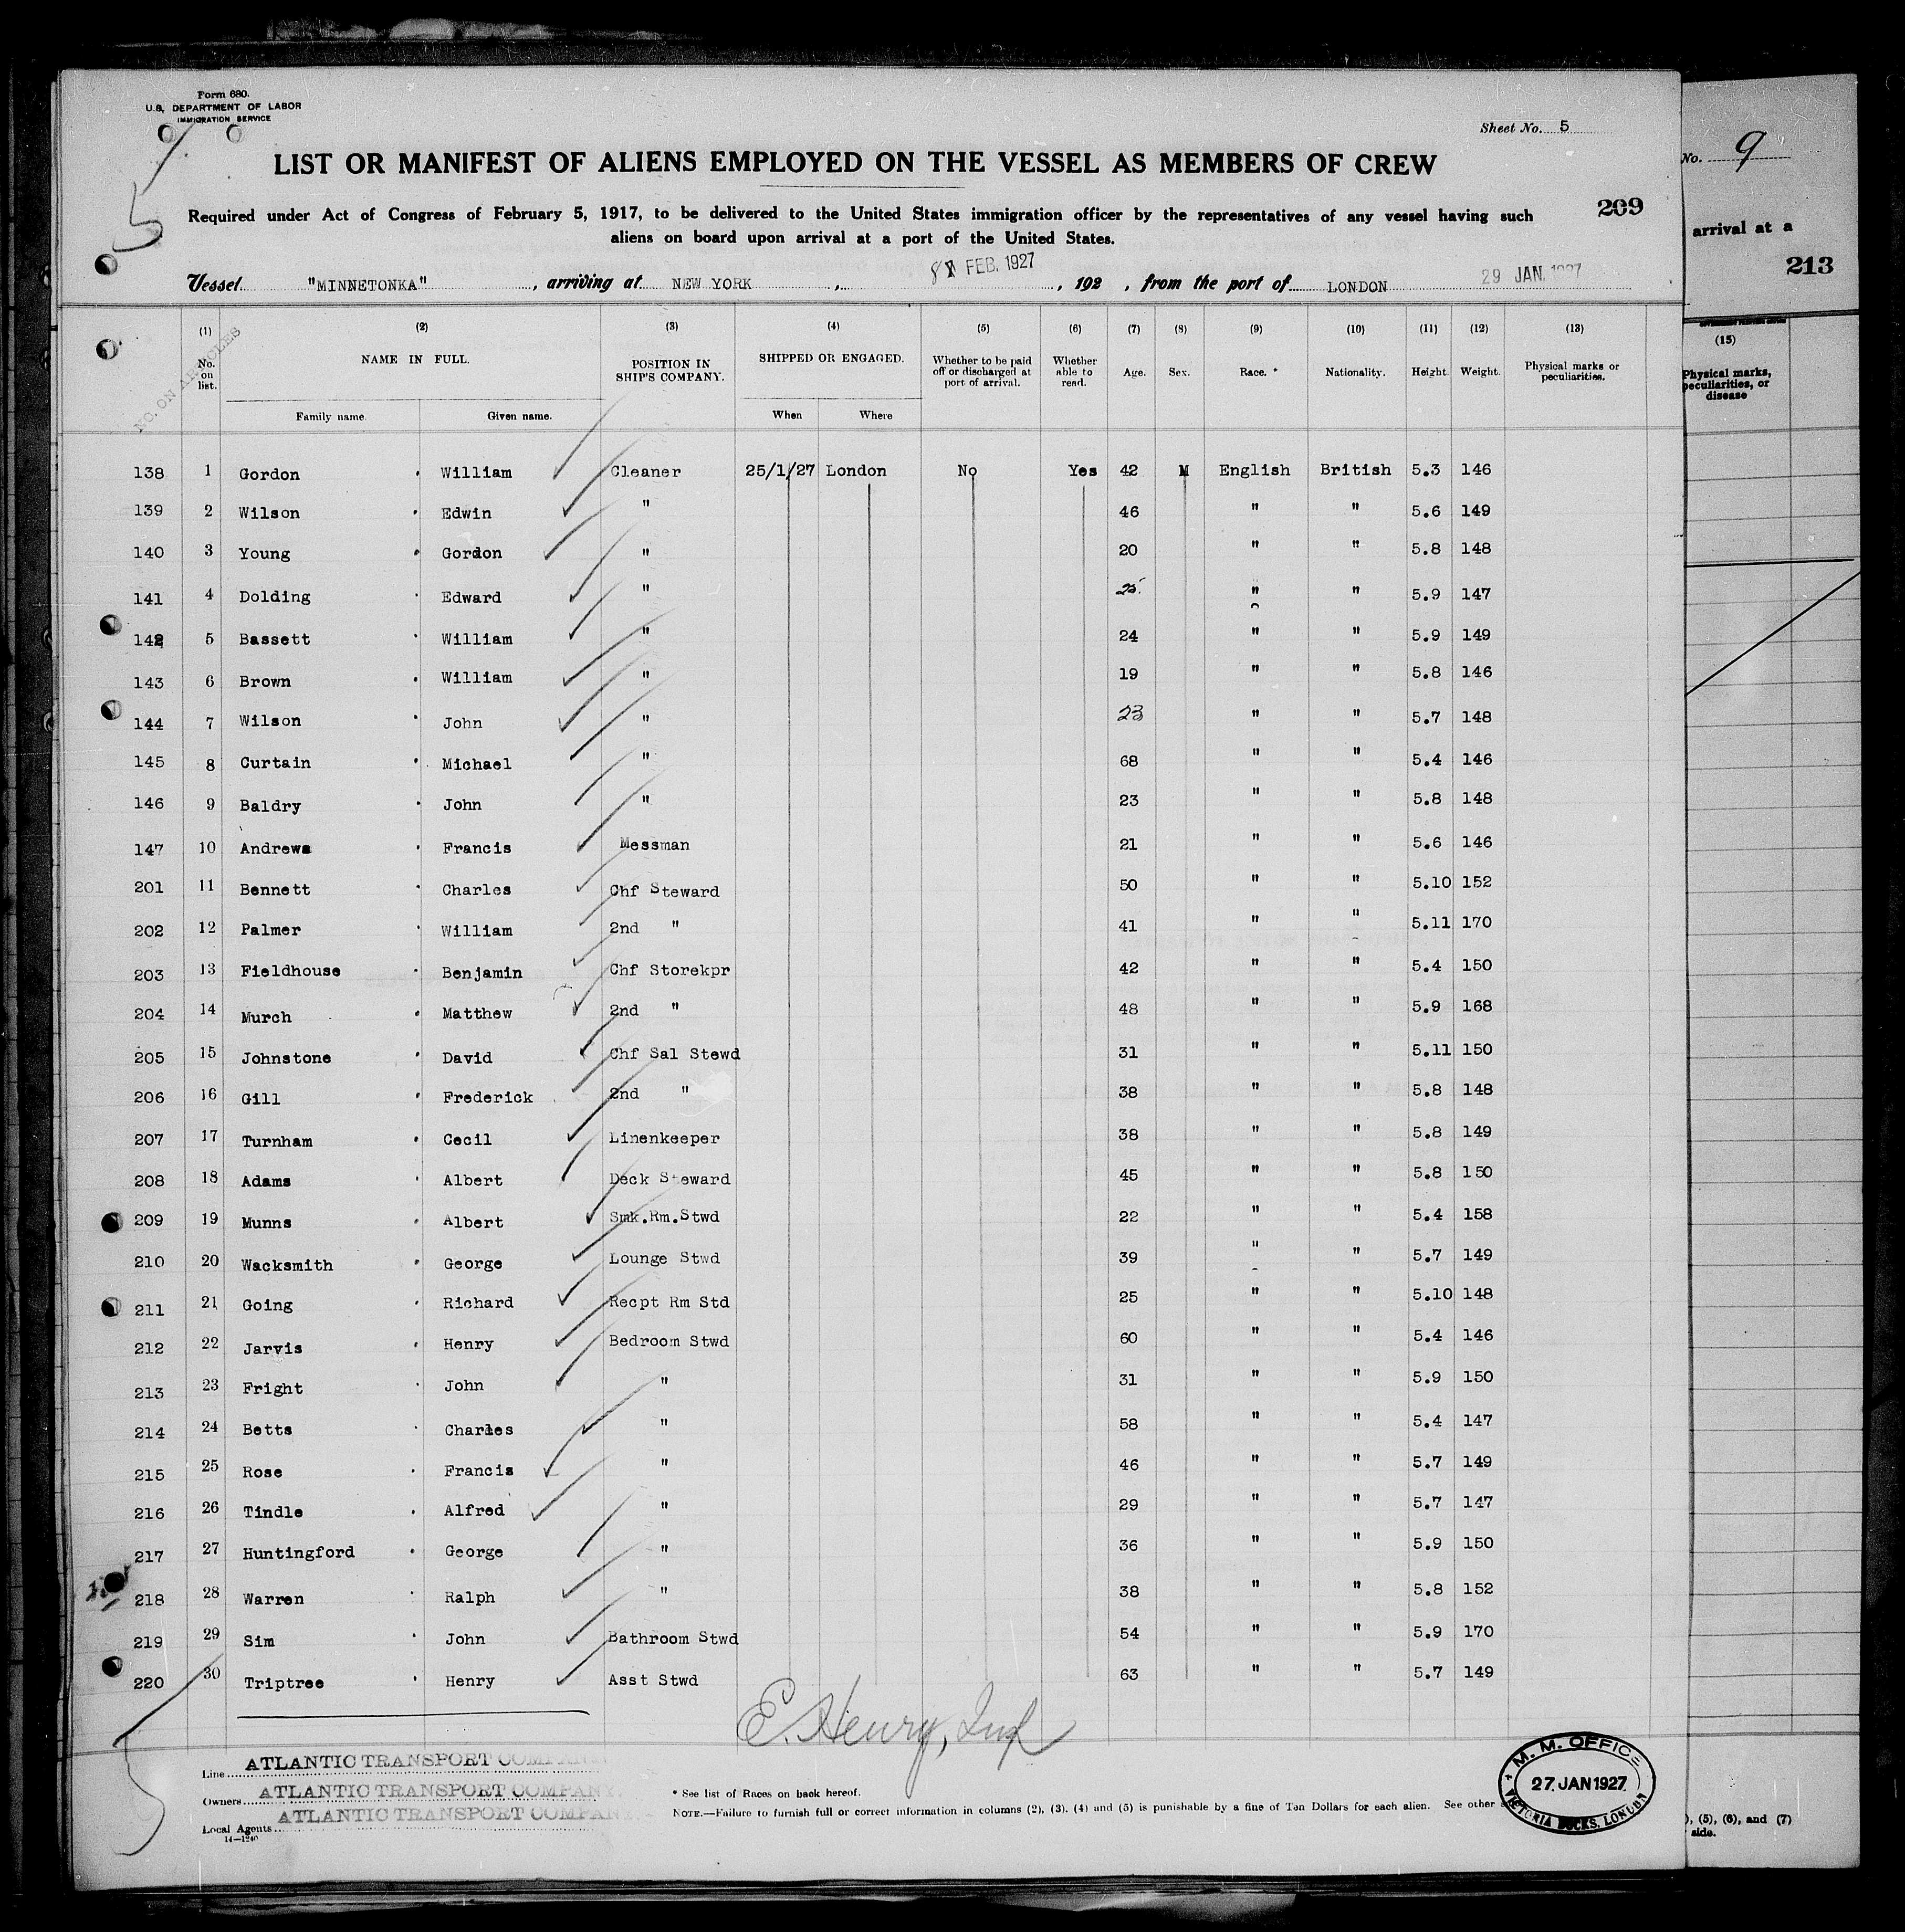 Form 680.
U.S. DEPARTMENT OF LABOR
IMMIGRATION SERVICE
Sheet No. 5
LIST OR MANIFEST OF ALIENS EMPLOYED ON THE VESSEL AS MEMBERS OF CREW
Required under Act of Congress of February 5, 1917, to be delivered to the United States immigration officer by the representatives of any vessel having such
aliens on board upon arrival at a port of the United States.
209
5
Vessel "MINNETONKA", arriving at NEW YORK, 8 FEB. 1927, 192 , from the port of LONDON 29 JAN. 1927
NO. ON ARTICLES
(1) (2) (3) (4) (5) (6) (7) (8) (9) (10) (11) (12) (13)
No. on list. NAME IN FULL. POSITION IN SHIP'S COMPANY. SHIPPED OR ENGAGED. Whether to be paid off or discharged at port of arrival. Whether able to read. Age. Sex. Race. * Nationality. Height. Weight. Physical marks or peculiarities.
Family name. Given name. When Where
138 1 Gordon William Cleaner 25/1/27 London No Yes 42 M English British 5.3 146
139 2 Wilson Edwin " 46 " " 5.6 149
140 3 Young Gordon " 20 " " 5.8 148
141 4 Dolding Edward " 25 " " 5.9 147
142 5 Bassett William " 24 " " 5.9 149
143 6 Brown William " 19 " " 5.8 146
144 7 Wilson John " 23 " " 5.7 148
145 8 Curtain Michael " 68 " " 5.4 146
146 9 Baldry John " 23 " " 5.8 148
147 10 Andrews Francis Messman 21 " " 5.6 146
201 11 Bennett Charles Chf Steward 50 " " 5.10 152
202 12 Palmer William 2nd " 41 " " 5.11 170
203 13 Fieldhouse Benjamin Chf Storekpr 42 " " 5.4 150
204 14 Murch Matthew 2nd " 48 " " 5.9 168
205 15 Johnstone David Chf Sal Stewd 31 " " 5.11 150
206 16 Gill Frederick 2nd " 38 " " 5.8 148
207 17 Turnham Cecil Linenkeeper 38 " " 5.8 149
208 18 Adams Albert Deck Steward 45 " " 5.8 150
209 19 Munns Albert Smk.Rm.Stwd 22 " " 5.4 158
210 20 Wacksmith George Lounge Stwd 39 " " 5.7 149
211 21 Going Richard Recpt Rm Std 25 " " 5.10 148
212 22 Jarvis Henry Bedroom Stwd 60 " " 5.4 146
213 23 Fright John " 31 " " 5.9 150
214 24 Betts Charles " 58 " " 5.4 147
215 25 Rose Francis " 46 " " 5.7 149
216 26 Tindle Alfred " 29 " " 5.7 147
217 27 Huntingford George " 36 " " 5.9 150
218 28 Warren Ralph " 38 " " 5.8 152
219 29 Sim John Bathroom Stwd 54 " " 5.9 170
220 30 Triptree Henry Asst Stwd 63 " " 5.7 149
E. Henry, Insp
Line ATLANTIC TRANSPORT COMPANY
Owners ATLANTIC TRANSPORT COMPANY
Local Agents ATLANTIC TRANSPORT COMPAN
14—1240
* See list of Races on back hereof.
NOTE.—Failure to furnish full or correct information in columns (2), (3), (4) and (5) is punishable by a fine of Ten Dollars for each alien. See other
M. M. OFFICE
27 JAN 1927
VICTORIA DOCKS, LONDON
No. 9
arrival at a
213
(15)
Physical marks,
peculiarities, or
disease
), (5), (6), and (7)
side.